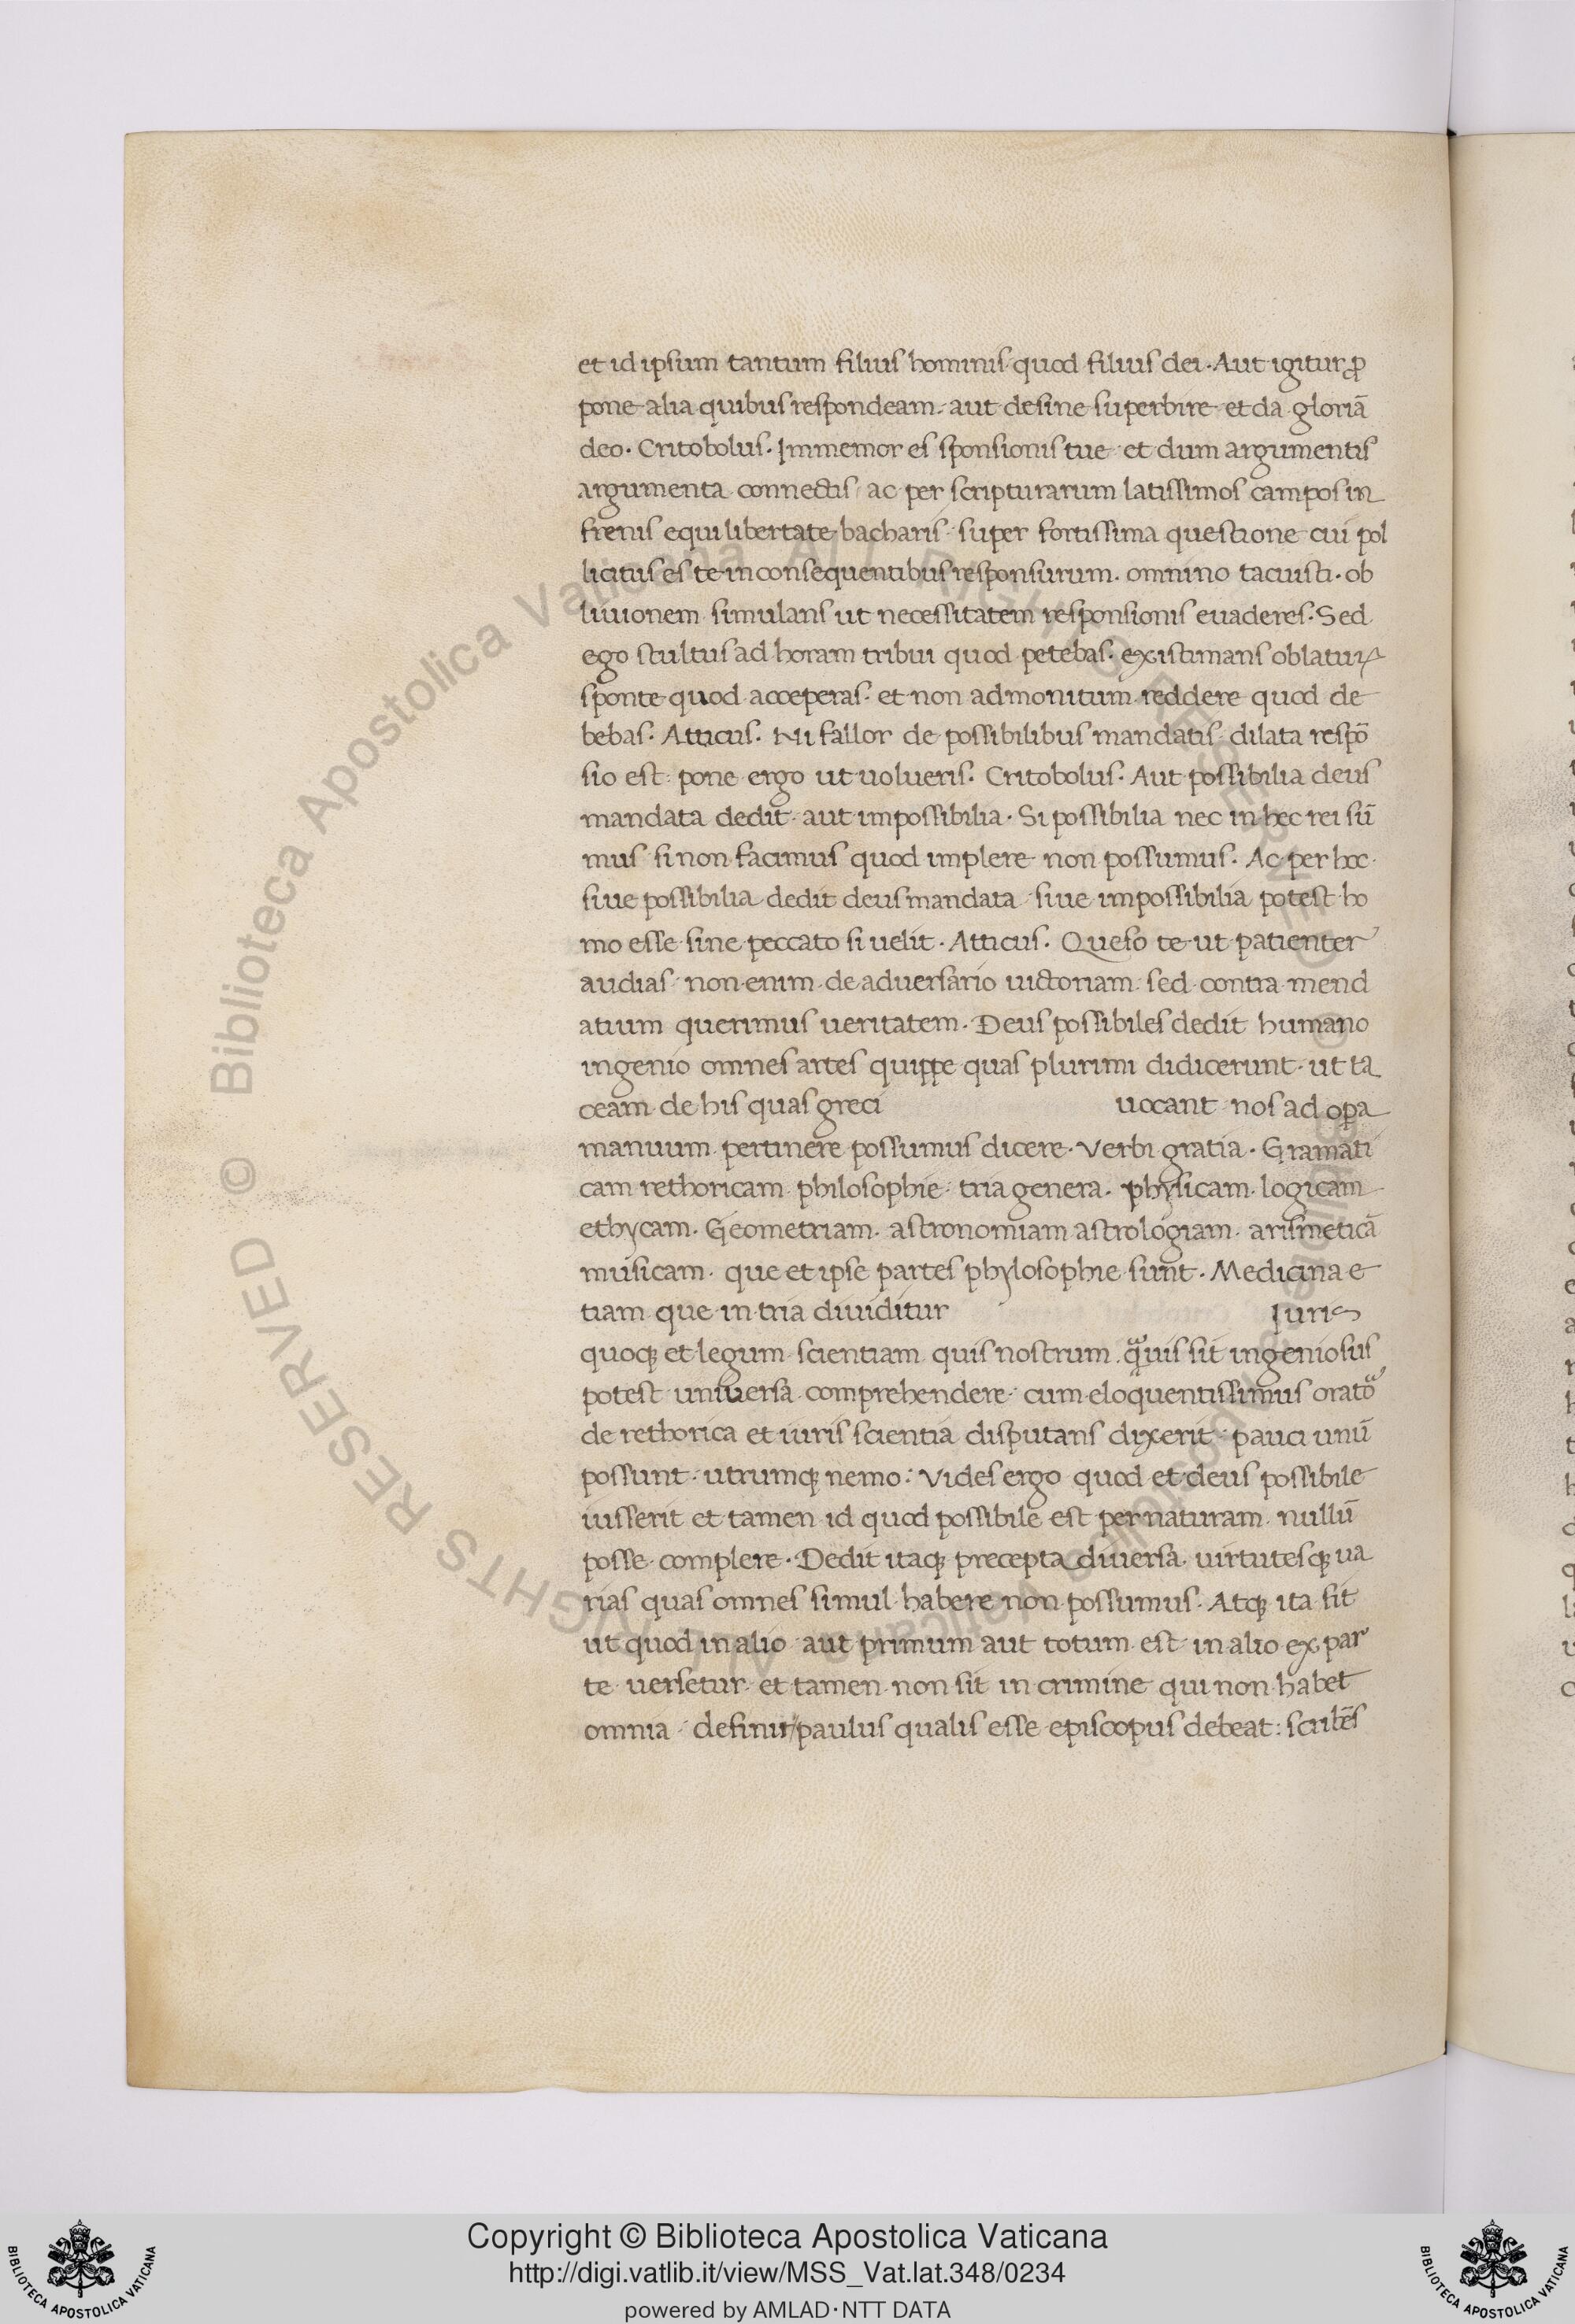 et id ipsum tantum filius hominis quod filius dei. Aut igitur ꝓ
pone alia quibus respondeam. aut desine superbire et da gloriā
deo. Critobolus. Immemor es sponsionis tue et dum argumentis
argumenta connectis ac per scripturarum latissimos campos in
frenis equi libertate bacharis super fortissima questione cui pol
licitus es te in consequentibus responsurum. omnino tacuisti. ob
liuionem simulans ut necessitatem responsionis euaderes. Sed
ego stultus ad horam tribui quod petebas. existimans oblaturꝫ
sponte quod acceperas. et non admonitum reddere quod de
bebas. Atticus. Ni fallor de possibilibus mandatis dilata respō
sio est: pone ergo ut uolueris. Critobolus. Aut possibilia deus
mandata dedit aut impossibilia. Si possibilia nec in hec rei sū
mus si non facimus quod implere non possumus. Ac per hoc.
siue possibilia dedit deus mandata siue impossibilia potest ho
mo esse sine peccato si uelit. Atticus. Queso te ut patienter
audias non enim de aduersario uictoriam: sed contra mend
atium querimus ueritatem. Deus possibiles dedit humano
ingenio omnes artes quippe quas plurimi didicerunt. ut ta
ceam de his quas greci uocant nos ad opa
manuum pertinere possumus dicere. Verbi gratia. Gramati
cam rethoricam philosophie tria genera. phisicam logicam
ethycam. Geometriam. astronomiam astrologiam. arismeticā
musicam. que et ipse partes phylosophie sunt. Medicina e
tiam que in tria diuiditur Iuris
quoqꝫ et legum scientiam quis nostrum. qͣuis sit ingeniosus
potest uniuersa comprehendere cum eloquentissimus orato
de rethorica et iuris scientia disputans dixerit: pauci unū
possunt utrumqꝫ nemo: Vides ergo quod et deus possibile
iusserit et tamen id quod possibile est per naturam nullū
posse complere. Dedit itaqꝫ precepta diuersa uirtutesqꝫ ua
rias quas omnes simul habere non possumus. Atqꝫ ita sit
ut quod in alio aut primum aut totum est in alio ex par
te uersetur et tamen non sit in crimine qui non habet
omnia definit paulus qualis esse episcopus debeat: scribēs
© Biblioteca Apostolica Vaticana ALL RIGHTS RESERVED
© Biblioteca Apostolica Vaticana ALL RIGHTS RESERVED
Copyright © Biblioteca Apostolica Vaticana
http://digi.vatlib.it/view/MSS_Vat.lat.348/0234
powered by AMLAD·NTT DATA
BIBLIOTECA APOSTOLICA VATICANA
BIBLIOTECA APOSTOLICA VATICANA